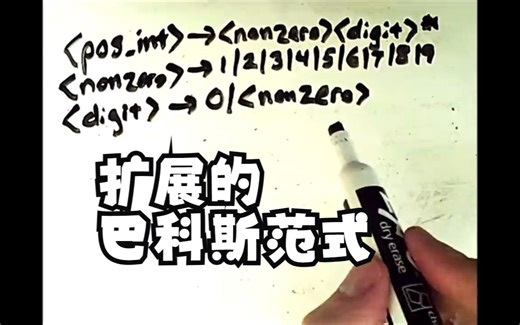 <pos_int>→<nonzero><digit>*
<nonzero>→1|2|3|4|5|6|7|8|9
<digit>→0|<nonzero>
扩展的
巴科斯范式
dry erase